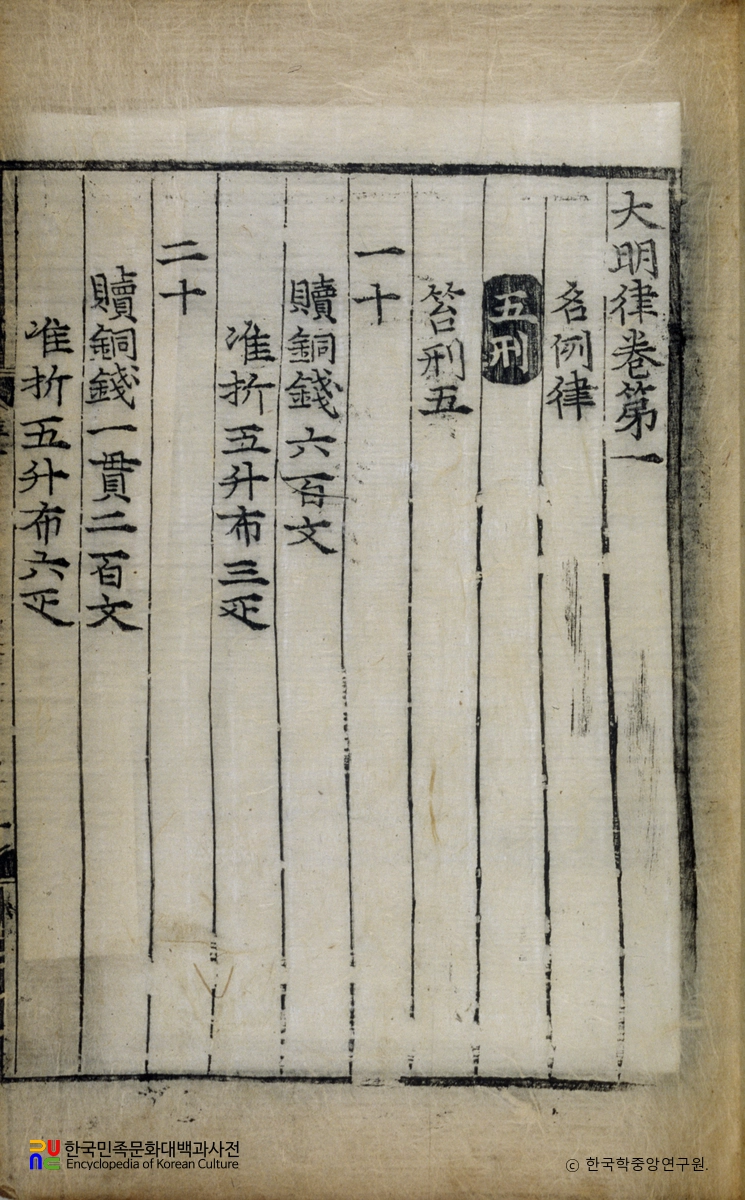 大明律卷第一
名例律
五刑
笞刑五
一十
贖銅錢六百文
准折五升布三疋
二十
贖銅錢一貫二百文
准折五升布六疋
한국민족문화대백과사전
Encyclopedia of Korean Culture
© 한국학중앙연구원.